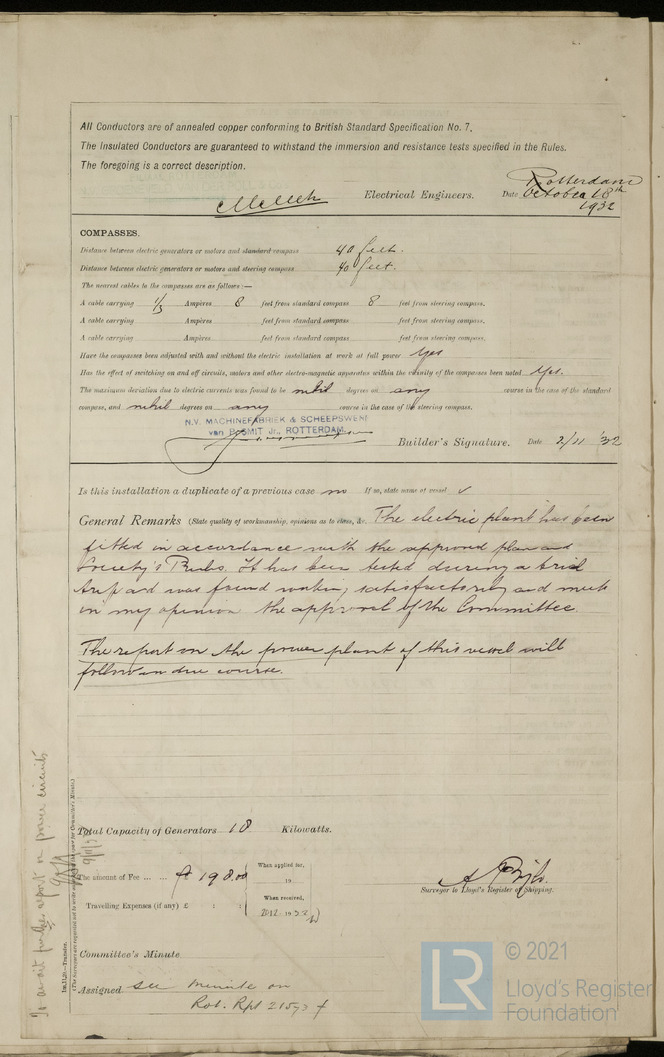 All Conductors are of annealed copper conforming to British Standard Specification No. 7.
The Insulated Conductors are guaranteed to withstand the immersion and resistance tests specified in the Rules.
The foregoing is a correct description.
Rotterdam
Electrical Engineers. Date October 18th
1932
COMPASSES.
Distance between electric generators or motors and standard compass 40 feet.
Distance between electric generators or motors and steering compass 40 feet.
The nearest cables to the compasses are as follows:—
A cable carrying 1/3 Ampères 8 feet from standard compass 8 feet from steering compass.
A cable carrying Ampères feet from standard compass feet from steering compass.
A cable carrying Ampères feet from standard compass feet from steering compass.
Have the compasses been adjusted with and without the electric installation at work at full power Yes
Has the effect of switching on and off circuits, motors and other electro-magnetic apparatus within the vicinity of the compasses been noted Yes.
The maximum deviation due to electric currents was found to be nihil degrees on any course in the case of the standard
compass, and nihil degrees on any course in the case of the steering compass.
N.V. MACHINEFABRIEK & SCHEEPSWERF
van P. SMIT Jr., ROTTERDAM.
Builder's Signature. Date 2/11 '32
Is this installation a duplicate of a previous case no If so, state name of vessel ✓
General Remarks (State quality of workmanship, opinions as to class, &c. The electric plant has been
fitted in accordance with the approved plan and
Society's Rules. It has been tested during a trial
trip and was found working satisfactorily and meets
in my opinion the approval of the Committee.
The report on the power plant of this vessel will
follow in due course.
Total Capacity of Generators 18 Kilowatts.
The amount of Fee ... ... ƒ 198.00
When applied for,
19
Travelling Expenses (if any) £ : :
When received,
20.12. 1932
Surveyor to Lloyd's Register of Shipping.
Committee's Minute
Assigned see minute on
Rot. Rpt 21573
To await further report on power circuits
1m,11,30—Transfer.
© 2021
Lloyd's Register
Foundation
LR